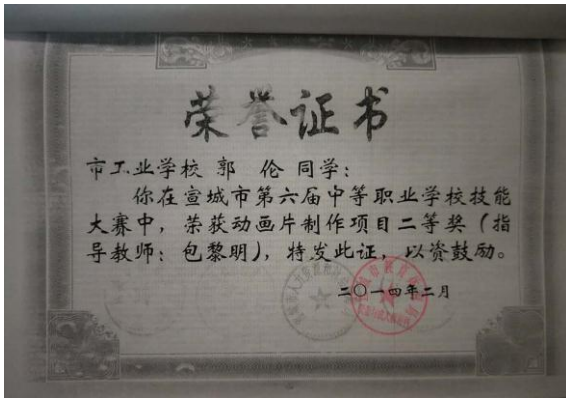 荣誉证书
市工业学校 郭 伦 同学：
你在宣城市第六届中等职业学校技能
大赛中，荣获动画片制作项目二等奖（指
导教师：包黎明），特发此证，以资鼓励。
二〇一四年二月